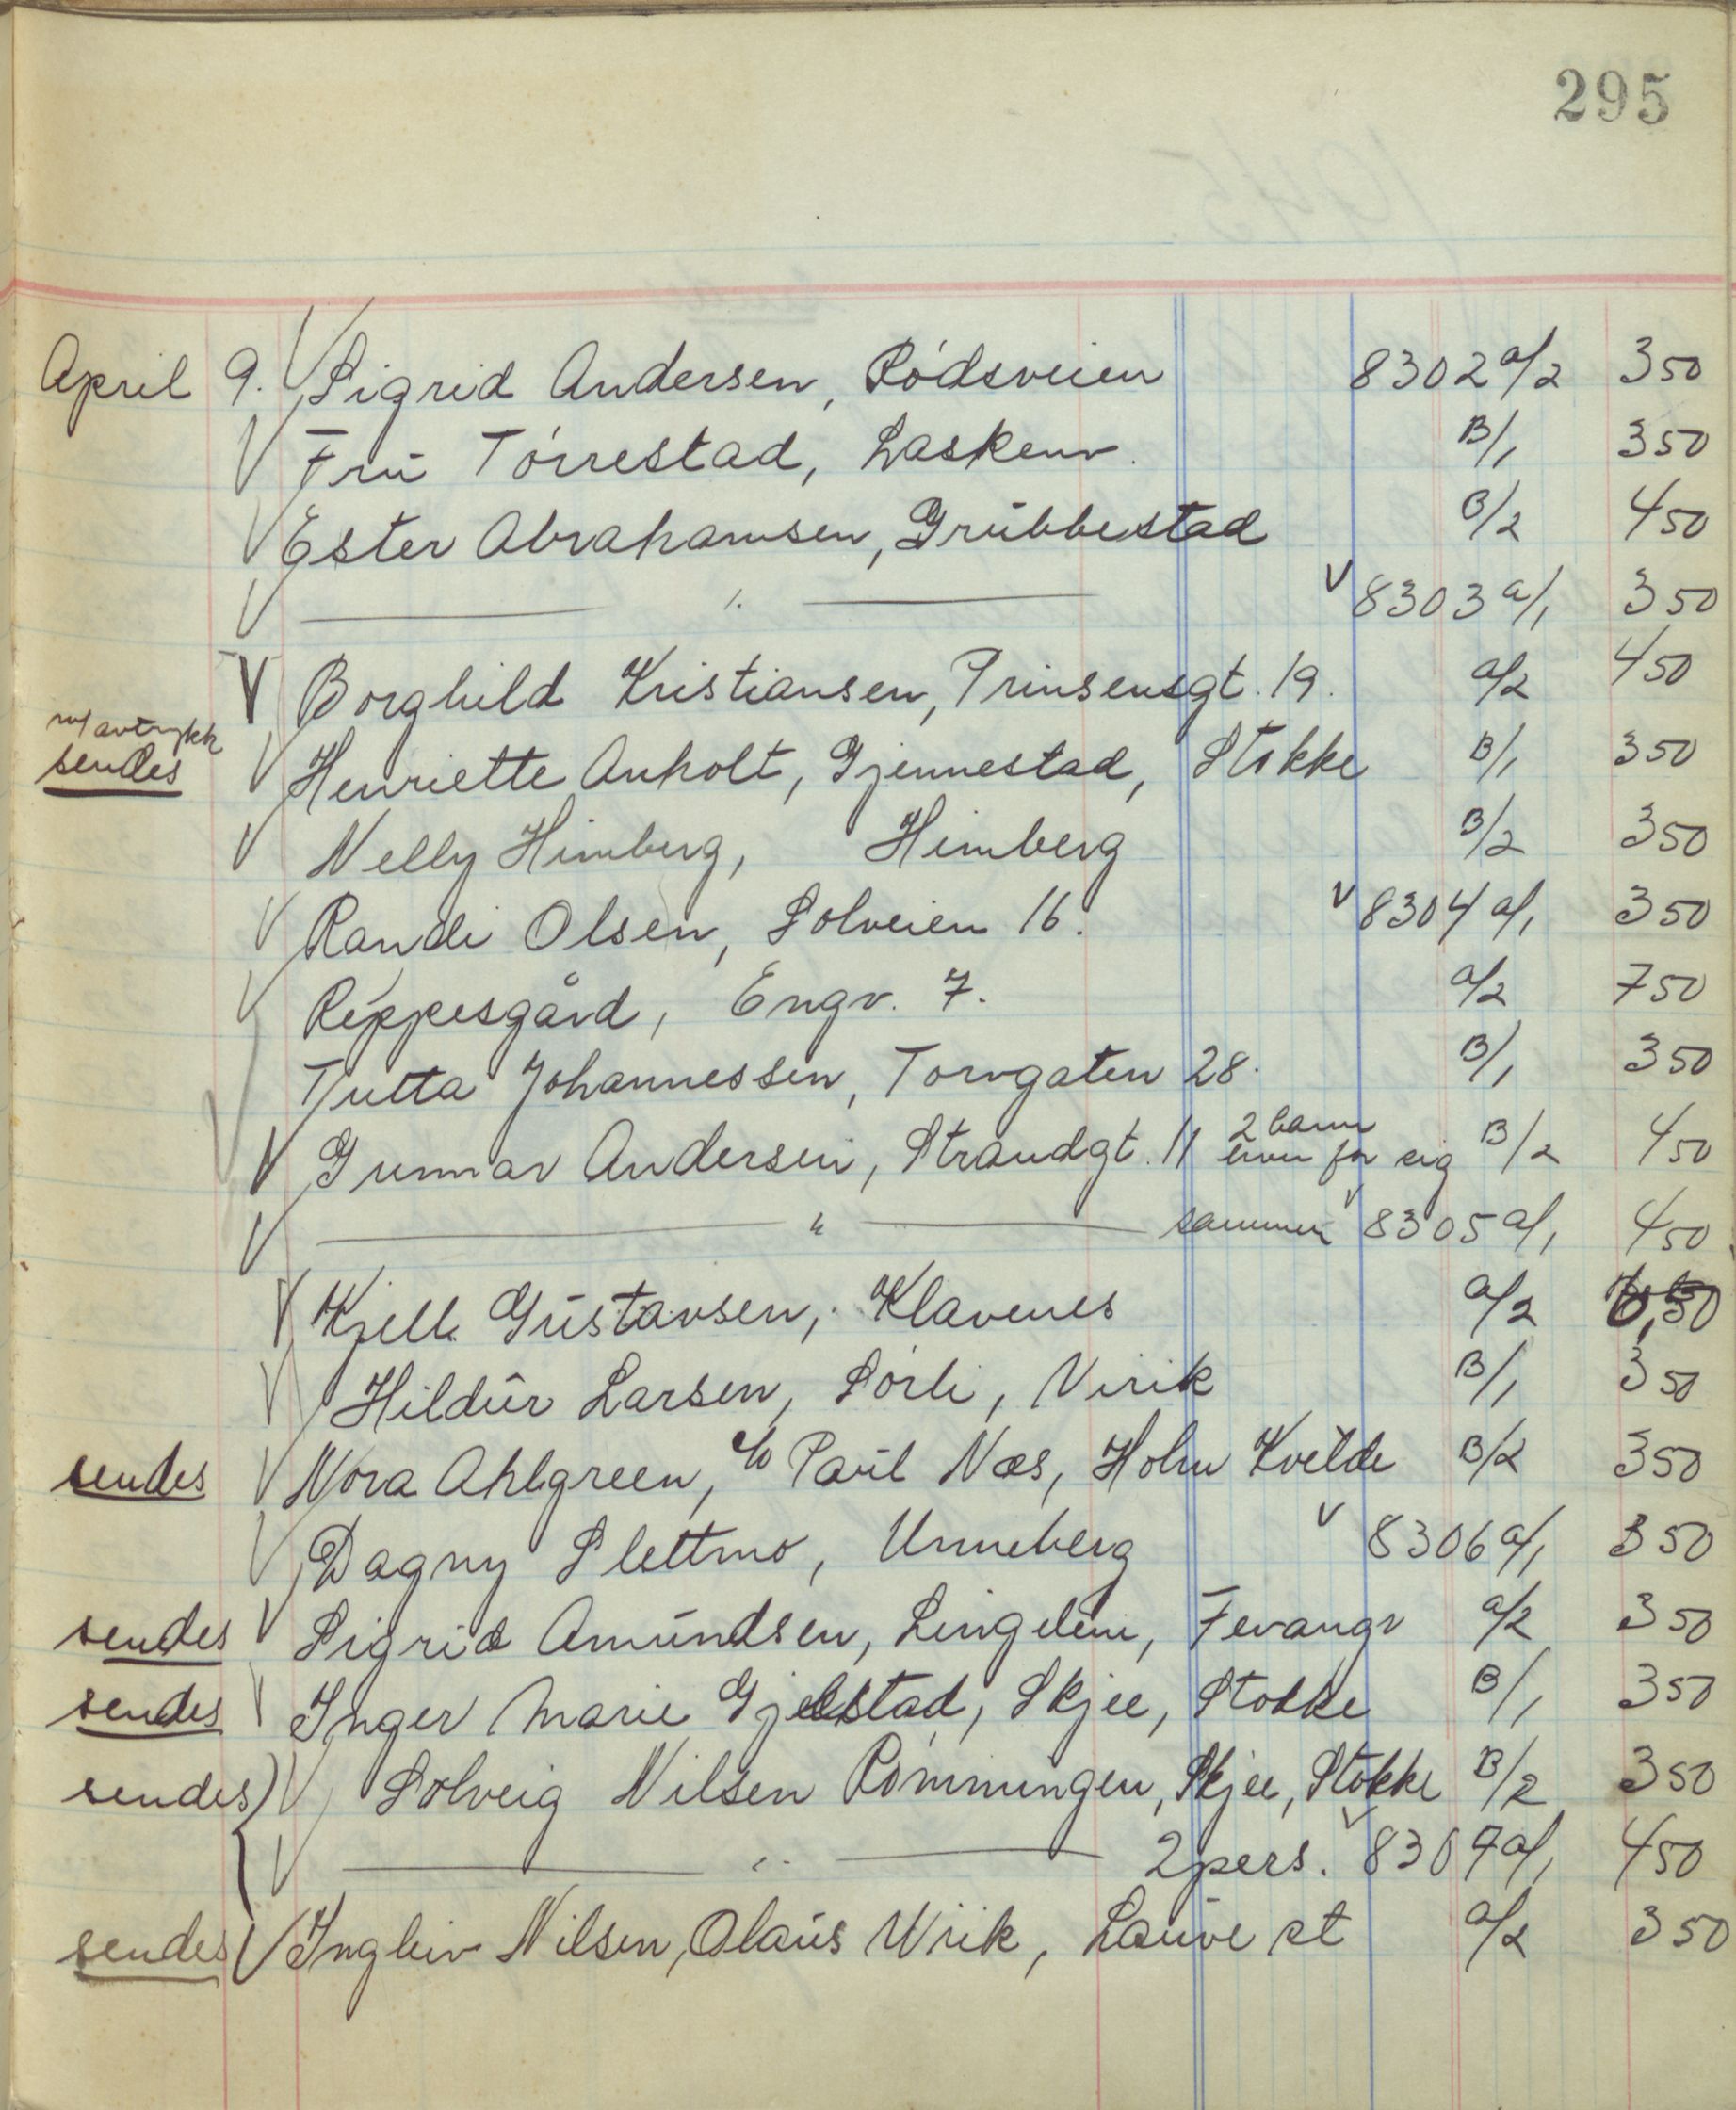 295
April 9. Sigrid Andersen, Rødsveien 8302 a/2 350
Fru Tørrestad, Laskenv. B/1 350
Ester Abrahamsen, Grubbestad B/2 450
— " — 8303 a/1 350
Borghild Kristiansen, Prinsensgt. 19. a/2 450
m/ avtrykk
sendes Henriette Anholt, Gjennestad, Stokke B/1 350
Nelly Himberg, Himberg B/2 350
Randi Olsen, Solveien 16. 8304 a/1 350
Reppesgård, Engv. 7. a/2 750
Tutta Johannessen, Torvgaten 28. B/1 350
Gunnar Andersen, Strandgt. 11 2 barn for sig B/2 450
— " — sammen 8305 a/1 450
Kjell Gustavsen, Klavenes a/2 6,50
Hildur Larsen, Sørli, Virik B/1 350
sendes Nora Ahlgreen, c/o Paul Næs, Holm Kvelde B/2 350
Dagny Slettmo, Unneberg 8306 a/1 350
sendes Sigrid Amundsen, Lingelem, Fevangr a/2 350
sendes Inger Marie Gjelstad, Skjee, Stokke B/1 350
sendes Solveig Nilsen Rømmingen, Skjee, Stokke B/2 350
— " — 2 pers. 8307 a/1 450
sendes Ingleiv Nilsen, Olaus Wiik, Lauve st a/2 350